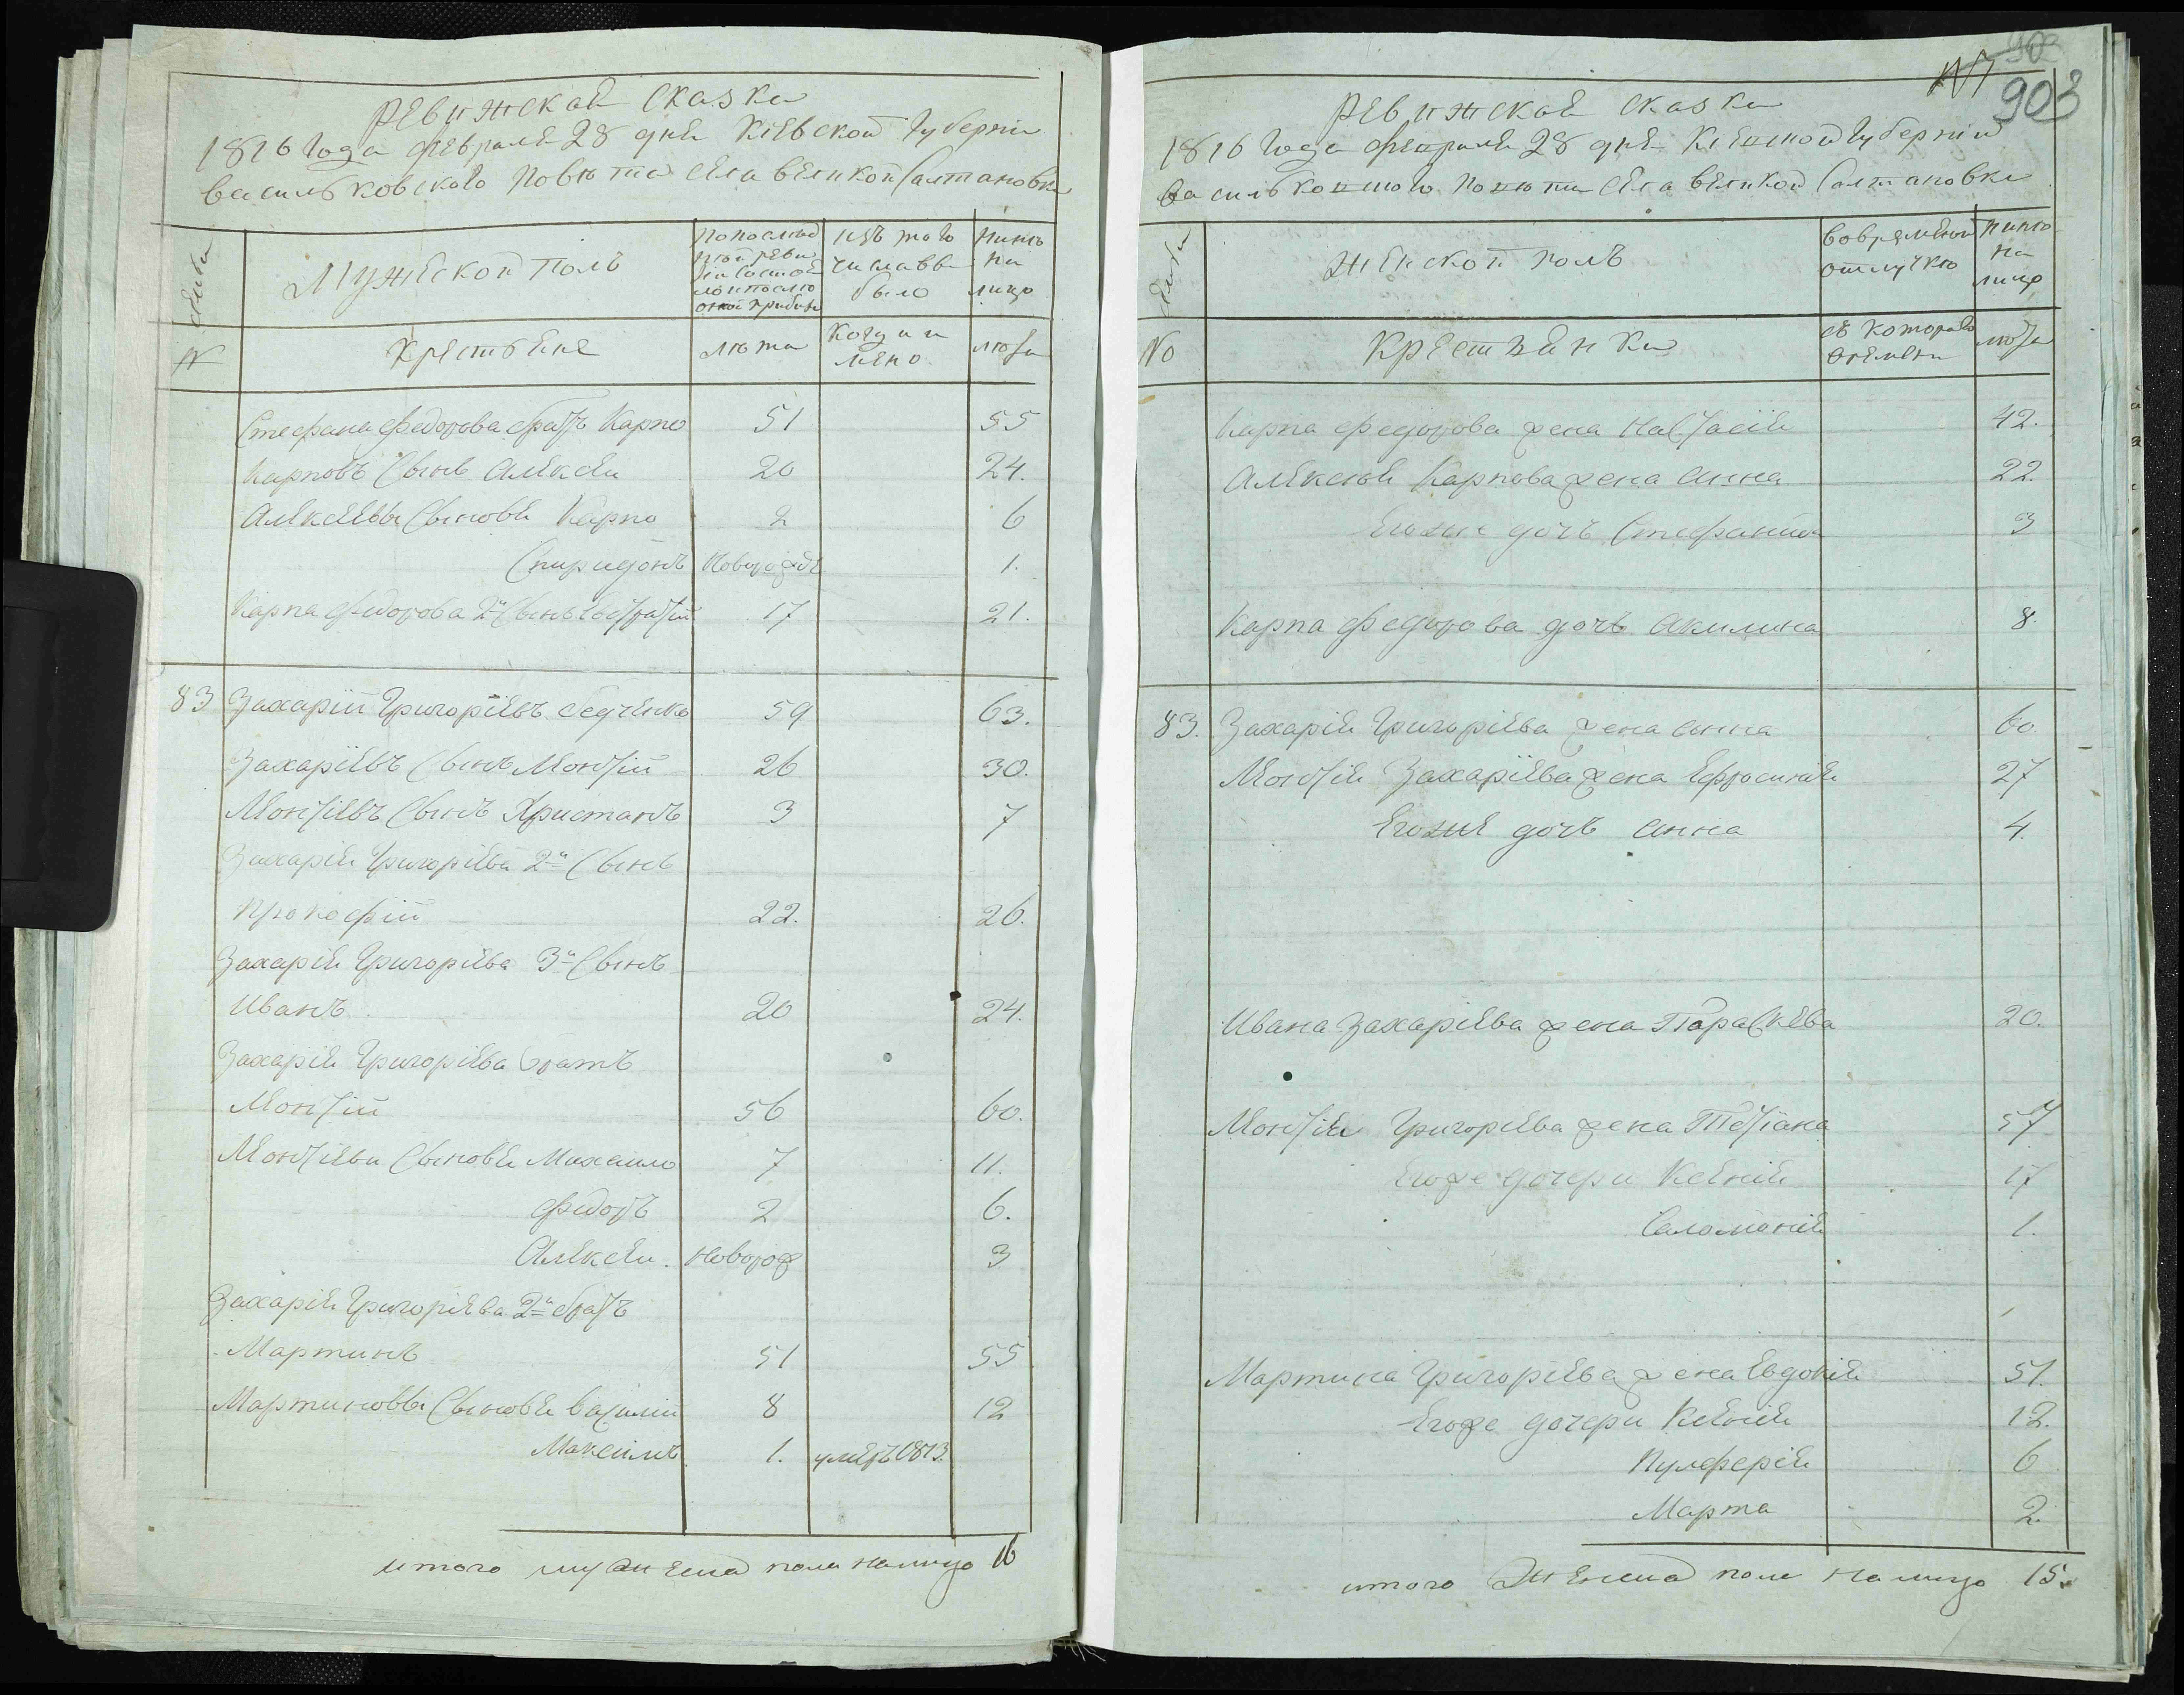 Ревижская сказка
1816 года февраля 28 дня Киевской губернии
васильковского повѣта села великой Салтановки
семьи
Мужеской полъ
По послед
ней реви
зіи состоя
ло и после
оной прибыло
изъ того
числа вы
было
Нинѣ
на
лицо
№
Крестьяне
лѣта
когда и
мено
лѣта
Стефана Федорова братъ Карпо 51 55
Карповъ Сынъ Алексѣй 20 24.
Алексѣевы Сыновя Карпо 2 6
Спиридонъ Новорожд 1.
Карпа Федорова 2й Сынъ Евстратій 17 21.
83 Захарій Григоріевъ Федченко 59 63.
Захаріевъ Сынъ Монтій 26 30.
Монтіевъ Сынъ Христанъ 3 7
Захарія Григоріева 2й Сынъ
Прокофій 22. 26.
Захарія Григоріева 3й Сынъ
Иванъ 20 24.
Захарія Григоріева братъ
Монтій 56 60.
Монтіеви Сыновя Михаило 7 11.
Федоръ 2 6.
Алексѣй. Новорож 3
Захарія Григоріева 2й братъ
Мартинъ 51 55
Мартиновы Сыновя Василій 8 12
Максимъ 1. умеръ 1813.
итого мужеска пола налицо 16
903
903
Ревижская сказка
1816 года февраля 28 дня Киевской губерніи
Васильковского повѣта села великой Салтановки
семьи
Женской полъ
Во временной
отлучкѣ
Нинѣ
на
лицо
№
Крестьянки
съ которого
времени
лѣта
Карпа Федорова жена Настасія 42.
Алексѣя Карпова жена Анна 22.
Егожъ дочь Стефанида 3
Карпа Федорова дочь Акилина 8.
83. Захарія Григоріева жена Анна 60.
Монтія Захаріева жена Ефросинія 27
Егоже дочь Анна 4.
Ивана Захаріева жена Параскева 20.
Монтія Григоріева жена Тетіана 57
Егоже дочери Ксенія 17
Саломонія 1.
Мартина Григоріева жена Евдокія 51.
Егоже дочери Ксенія 12.
Пулферія 6
Марта 2.
итого Женска пола налицо 15.